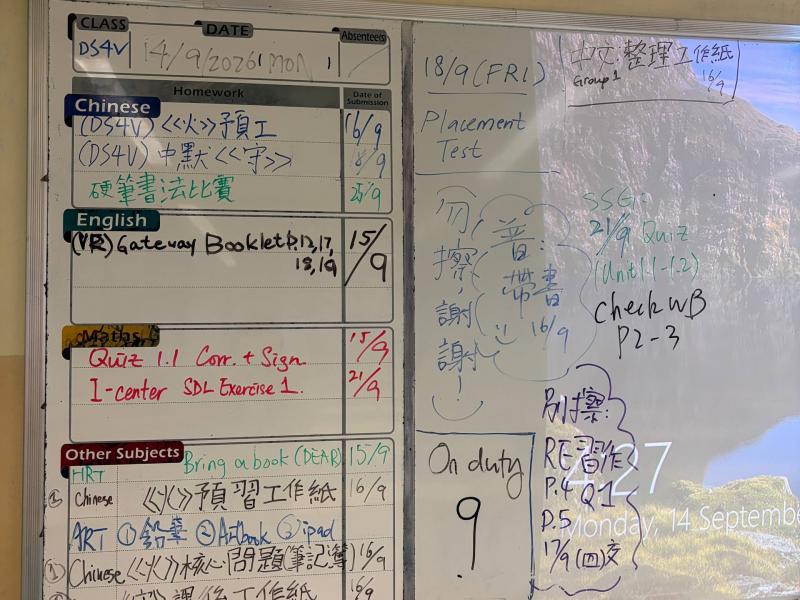 CLASS DATE Absentees
DS4V 14/9/2026 MON
Homework Date of Submission
Chinese
(DS4V) <<火>>預工 16/9
(DS4V) 中默 <<守>>
硬筆書法比賽 25/9
English
Gateway Booklet P.13,17, 15/9
18,19
Maths
Quiz 1.1 Corr. + Sign 15/9
I-center SDL Exercise 1. 21/9
Other Subjects
HRT Bring a book (DEAR) 15/9
Chinese <<火>>預習工作紙 16/9
ART ①鉛筆 ②Artbook ③ipad
Chinese <<火>>核心問題筆記簿 16/9
課後工作紙 16/9
18/9 (FRI)
Placement
Test
中文整理工作紙
Group 1 16/9
勿擦,謝謝!
普:
帶書
16/9
SSG:
21/9 Quiz
(Unit 1.1-1.2)
Check WB
P2-3
On duty
9
別擦:
RE習作
P.4 Q1
P.5
17/9 (四)交
:27
Monday, 14 Septembe